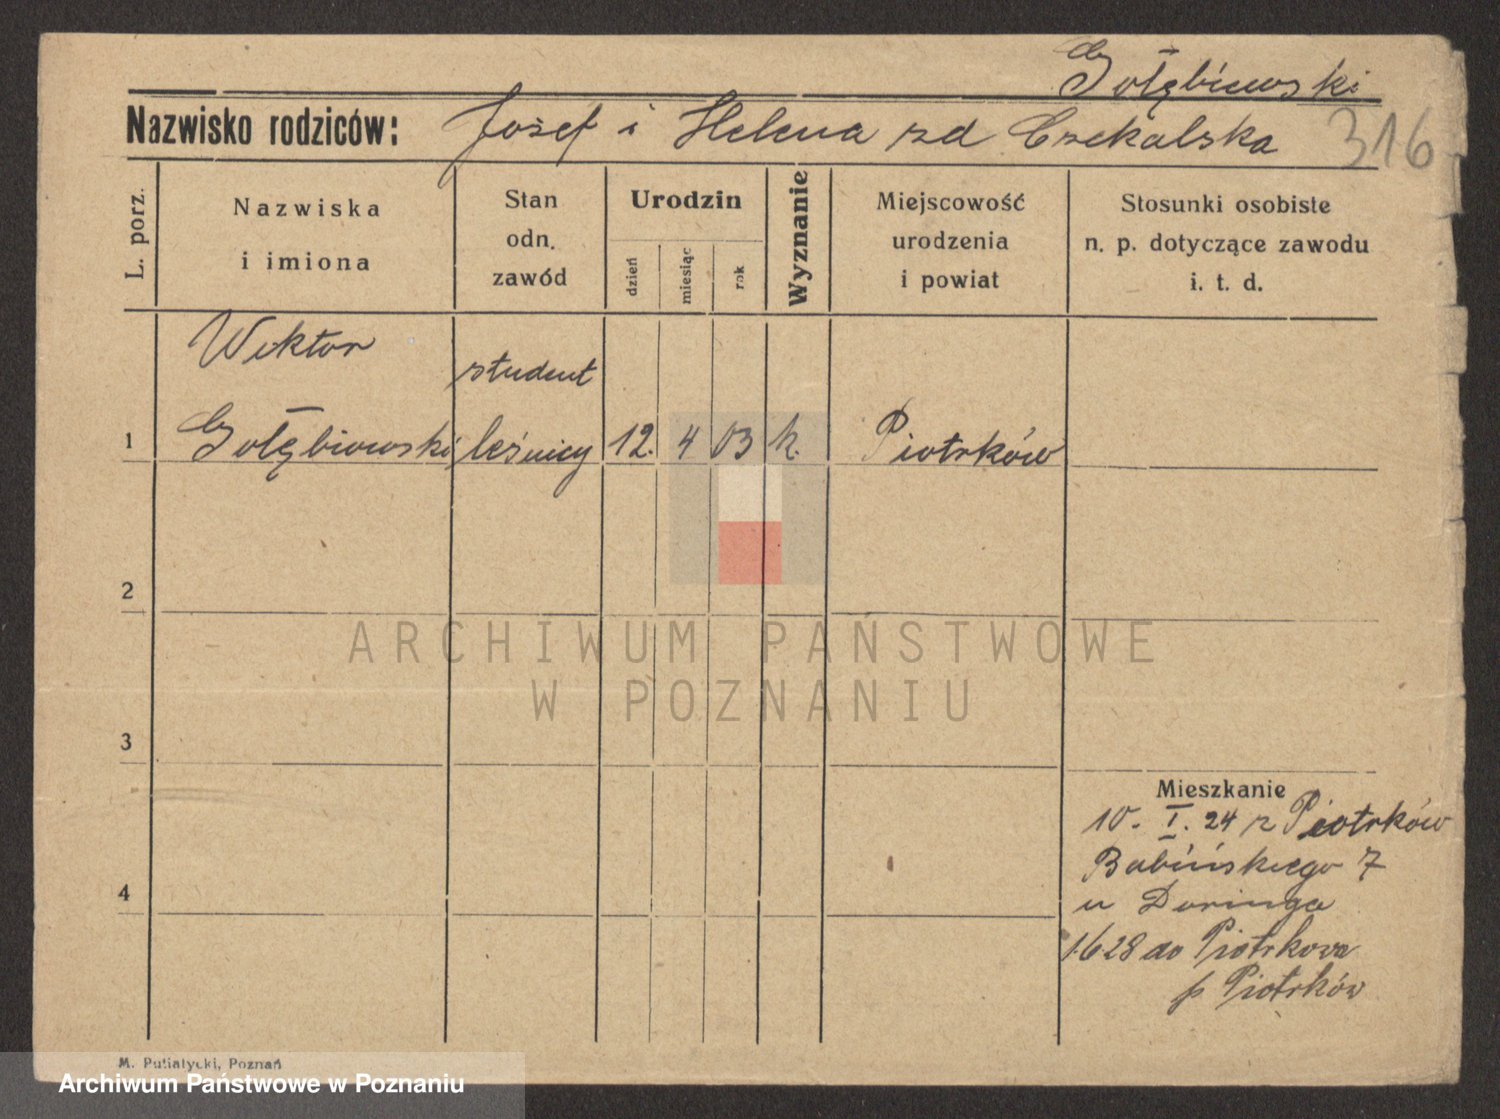 Gołębiewski
Nazwisko rodziców: Józef i Helena zd Czekalska 316
L. porz.
Nazwiska
i imiona
Stan
odn.
zawód
Urodzin
dzień
miesiąc
rok
Wyznanie
Miejscowość
urodzenia
i powiat
Stosunki osobiste
n. p. dotyczące zawodu
i. t. d.
Wiktor student
1 Gołębiowski leśnicy 12. 4 03 k. Piotrków
2
ARCHIWUM PAŃSTWOWE
W POZNANIU
3
Mieszkanie
10. I. 24 z Piotrków
Babińskiego 7
4
u Doringa
1.6 28 do Piotrkowa
p Piotrków
M. Putiatycki, Poznań
Archiwum Państwowe w Poznaniu